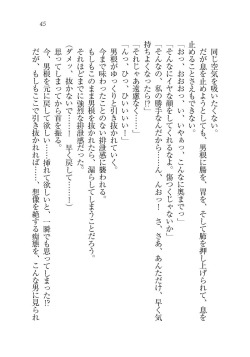 45
同じ空気を吸いたくない。
だが息を止めようとしても、男根に腸を、胃を、そして肺を押し上げられて、息を
止めることさえもできない。
「おっ、おおおっ、こんなに奥までっ」
「そんなにイヤな顔をしてくれるなよ、傷つくじゃないか」
「そんなの、私の勝手なんだから――ん、んおっ！　さ、さあ、あんただけ、早く気
持ちよくなったら!?」
「それじゃあ遠慮なく……」
「んっ、ひっ、ひいいい！」
男根がゆっくりと引き抜かれていく。
今まで味わったことのない排泄感に襲われる。
もしもこのまま男根を引き抜かれたら、漏らしてしまうことだろう。
それほどまでに強烈な排泄感だった。
「ダメっ、抜かないで……！　早く戻して……！」
思ってしまってから首を振る。
今、男根を元に戻して欲しい……挿れて欲しいと、一瞬でも思ってしまった!?
だが、もしもここで引き抜かれたら……、想像を絶する痴態を、こんな男に見られ